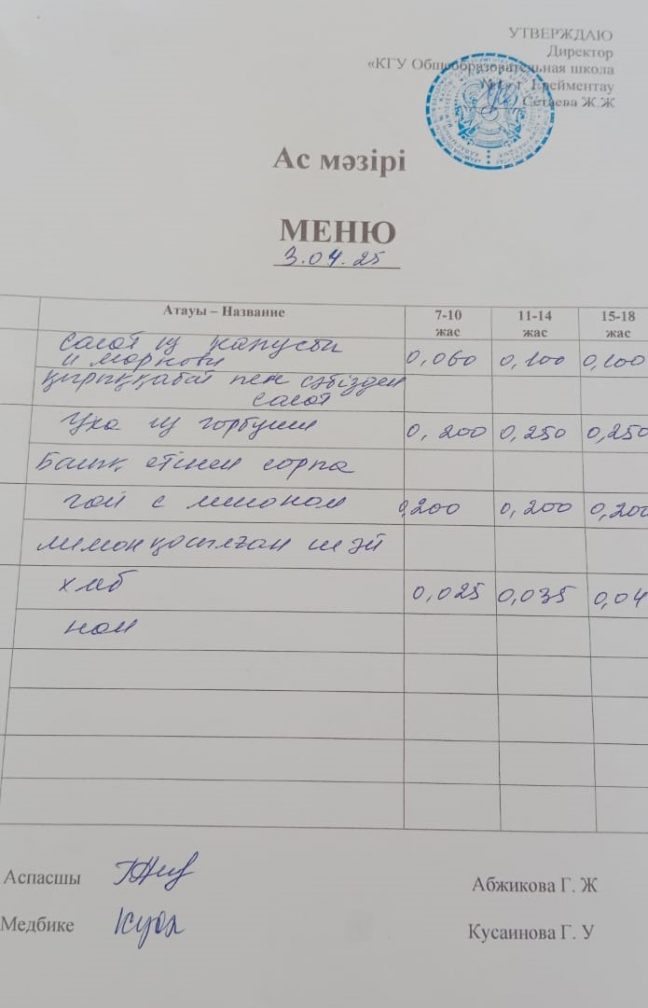 УТВЕРЖДАЮ
Директор
«КГУ Общеобразовательная школа
г. Ерейментау
Сетаева Ж.Ж
Ас мәзірі
МЕНЮ
3.04.25
Атауы – Название 7-10 жас 11-14 жас 15-18 жас
салат из капусты
и моркови 0,060 0,100 0,100
қырыққабат пен сәбізден
салат
Уха из горбуши 0,200 0,250 0,250
Балық етінен сорпа
чай с лимоном 0,200 0,200 0,200
лимон қосылған шәй
хлеб 0,025 0,035 0,04
нан
Аспасшы Абжикова Г. Ж
Медбике Кусаинова Г. У